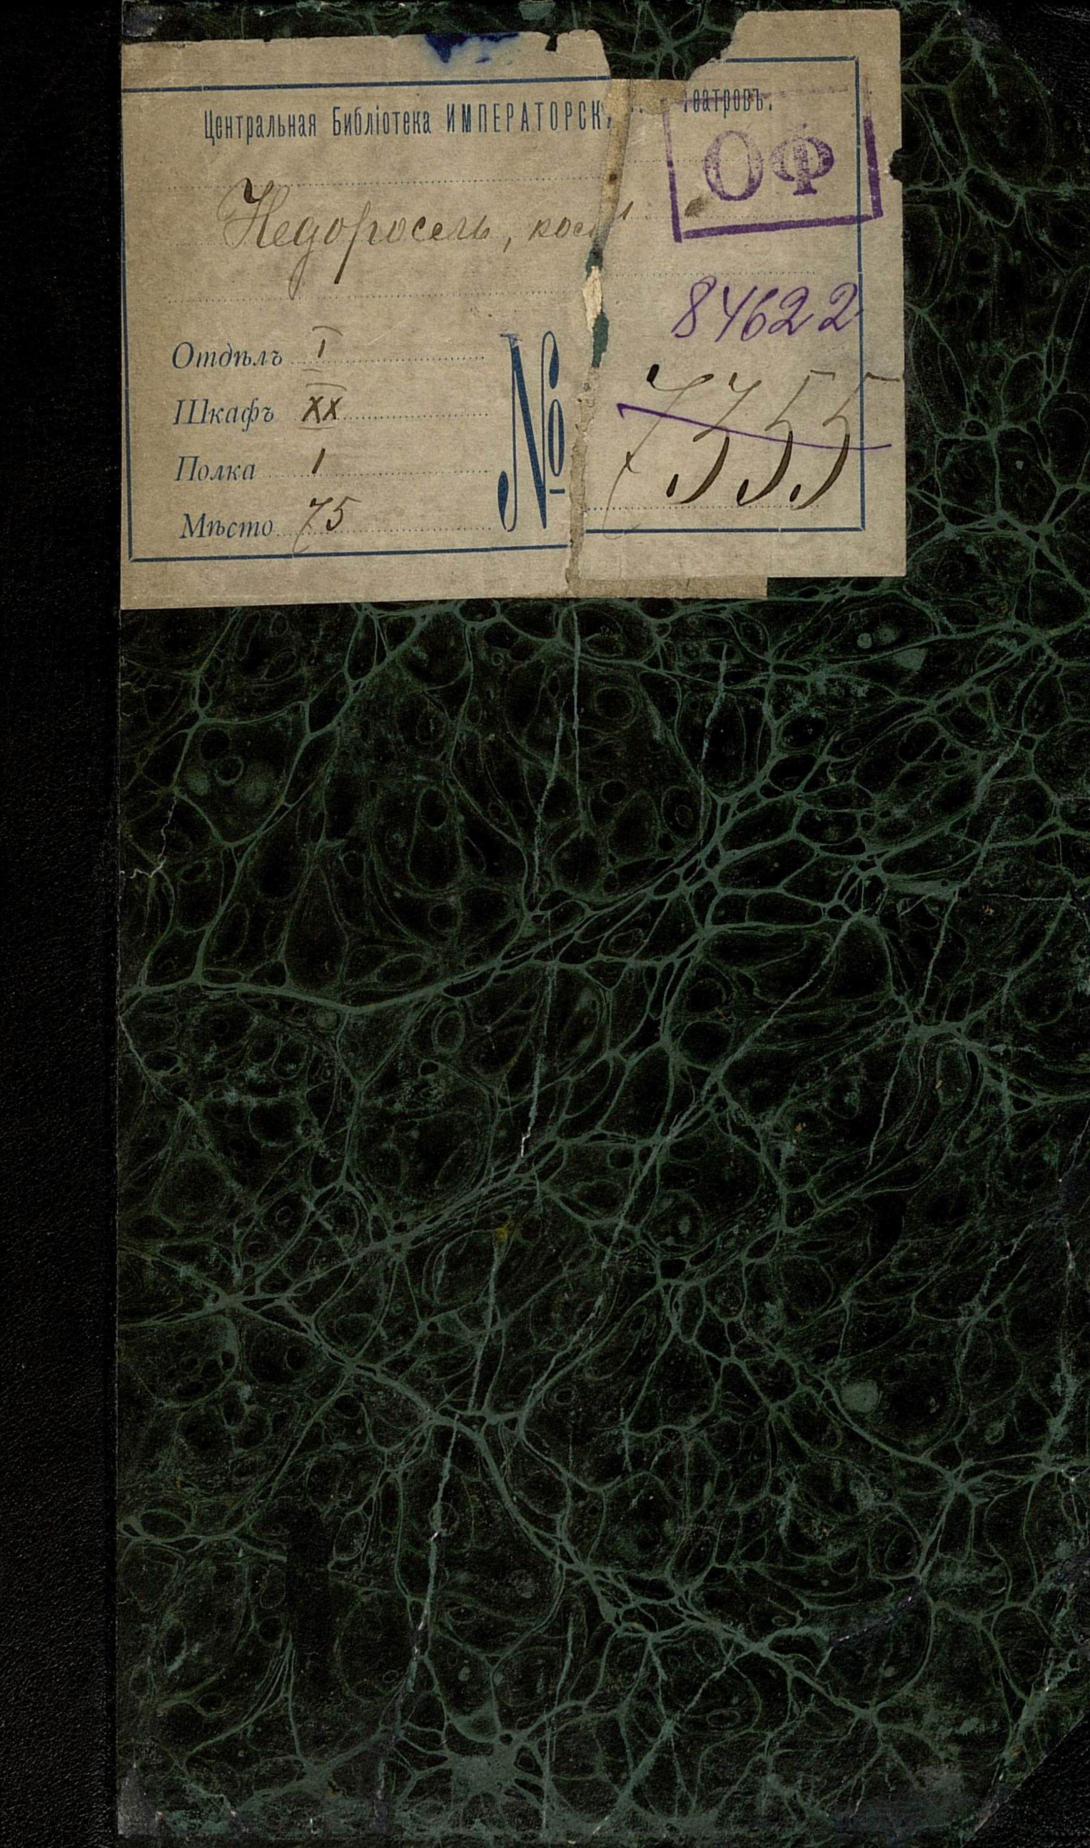 Центральная Библіотека ИМПЕРАТОРСК театровъ.
ОФ
Недоросель,
84622
Отдѣлъ I
Шкафъ XX
Полка 1
Мѣсто 75
№ 7355